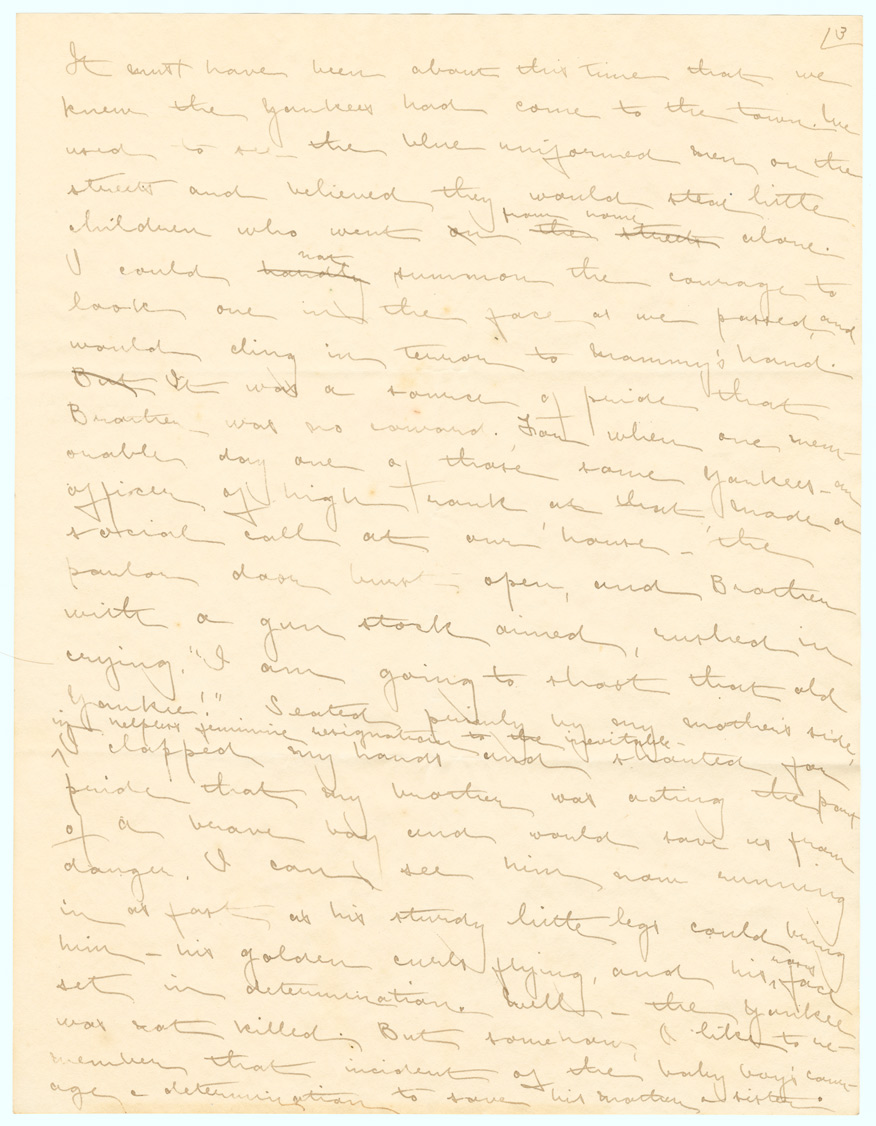 13
It must have been about this time that we
knew the Yankees had come to the town. We
used to see the blue uniformed men on the
streets and believed they would steal little
from home
children who went on the streets alone.
not
I could hardly summon the courage to
look one in the face as we passed, and
would cling in terror to Mammy's hand.
But It was a source of pride that
Brother was no coward. For when one mem-
orable day one of those same Yankees - an
officer of high rank at that, made a
social call at our house - the
parlor door burst open, and Brother
with a gun stock aimed, rushed in
crying, "I am going to shoot that old
Yankee!" Seated primly by my mother's side,
in helpless feminine resignation to the inevitable -
I clapped my hands and shouted for
pride that my brother was acting the part
of a brave boy and would save us from
danger. I can see him now running
in as fast as his sturdy little legs could bring
him - his golden curls flying, and his face
set in determination. Well - the Yankee
was not killed. But somehow, I like to re-
member that incident of the baby boy's cour-
age & determination to save his mother & sister.